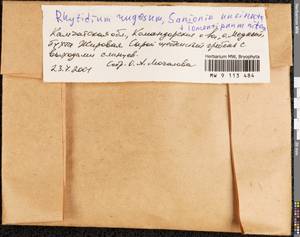 Rhytidium rugosum, Sanionia uncinata
+ Tomentypnum nitens
Камчатская обл., Командорские о-ва, о. Медный
Бухта Жировая. Сырой щебнистый гребень с
выходами сланцев.
23.V.2001 Собр. О. А. Мочалова
Herbarium MW, Bryophyta
MW 9 113 484